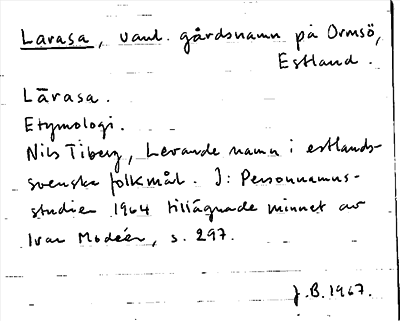 Larasa, vanl. gårdsnamn på Ormsö,
Estland.
Lārasa.
Etymologi.
Nils Tiberg, Levande namn i estlands-
svenska folkmål. I: Personnamns-
studier 1964 tillägnade minnet av
Ivar Modéer, s. 297.
J.B. 1967.